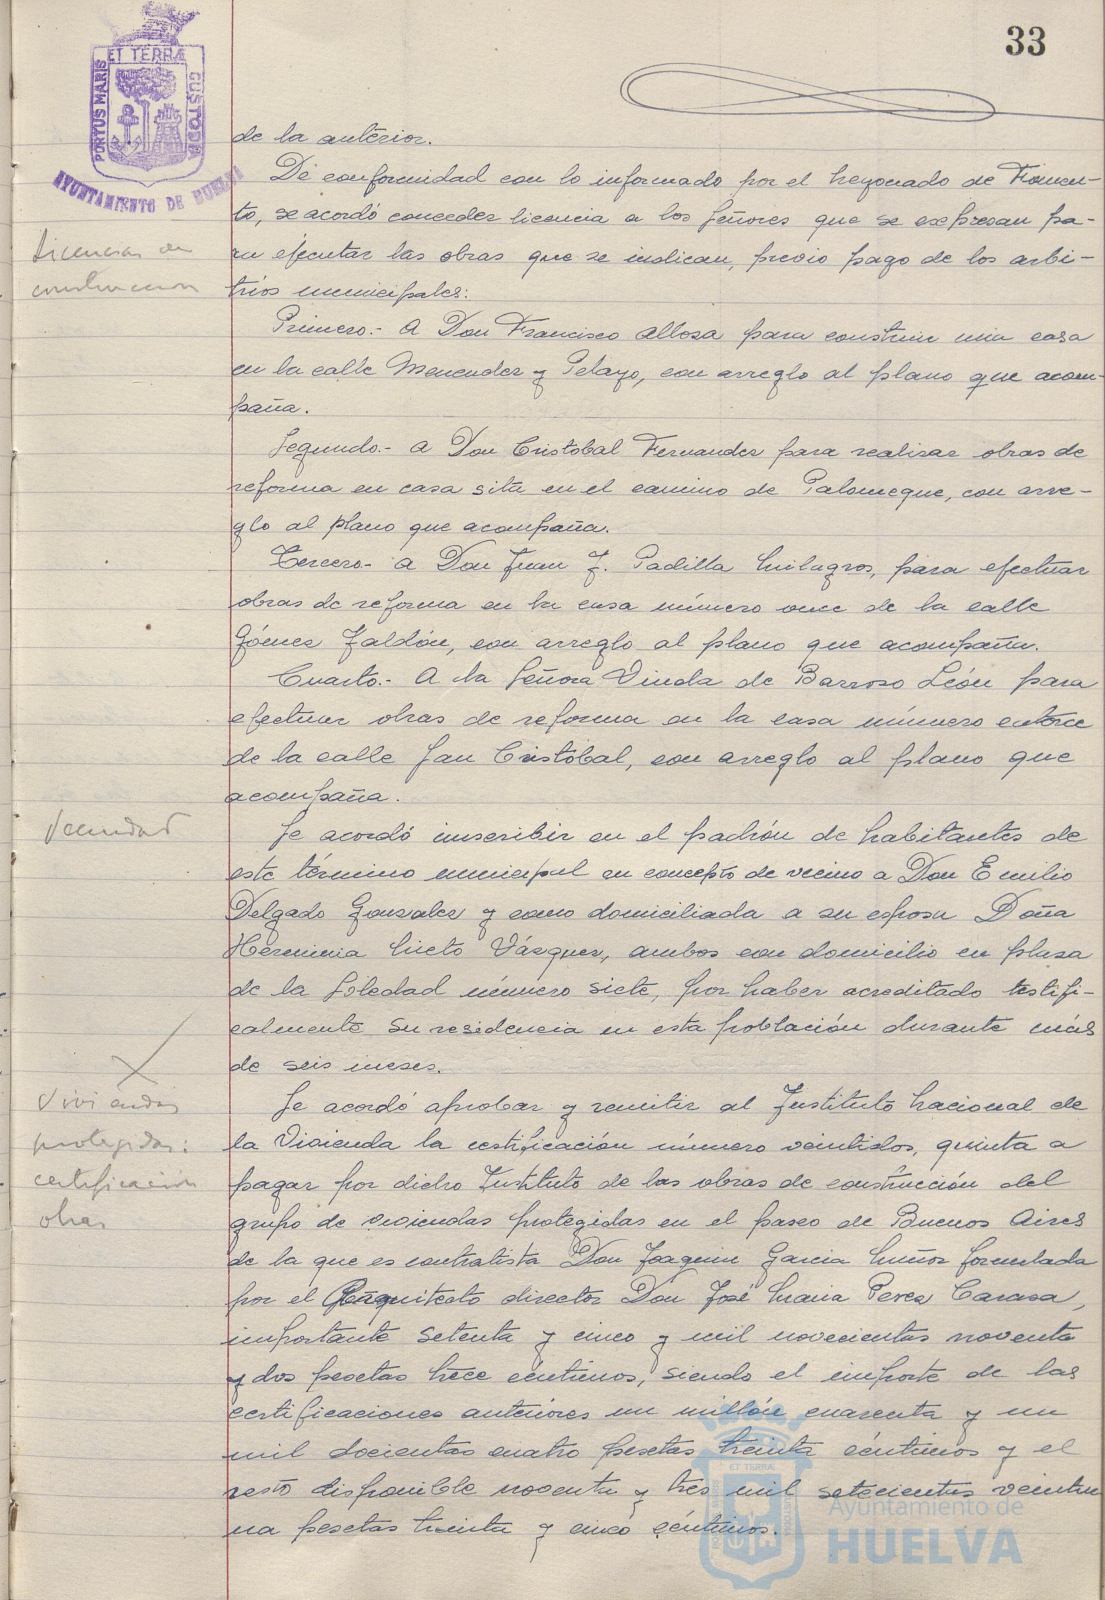 33
PORTUS MARIS
ET TERRÆ
CUSTODIA
AYUNTAMIENTO DE HUELVA
de la anterior.
De conformidad con lo informado por el Negociado de Fomen-
to, se acordó conceder licencia a los Señores que se expresan pa-
Licencias de
construcción
ra ejecutar las obras que se indican, previo pago de los arbi-
trios municipales:
Primero.- A Don Francisco Allosa para construir una casa
en la calle Menendez y Pelayo, con arreglo al plano que acom-
paña.
Segundo.- a Don Cristobal Fernandez para realizar obras de
reforma en casa sita en el camino de Palomeque, con arre-
glo al plano que acompaña.
Tercero- a Don Juan J. Padilla Milagros, para efectuar
obras de reforma en la casa número once de la calle
Gómez Jaldón, con arreglo al plano que acompaña.
Cuarto.- A la Señora Viuda de Barroso León para
efectuar obras de reforma en la casa número catorce
de la calle San Cristóbal, con arreglo al plano que
acompaña.
Vecindad
Se acordó inscribir en el padrón de habitantes de
este término municipal en concepto de vecino a Don Emilio
Delgado Gonzalez y como domiciliada a su esposa Doña
Herminia Nieto Vázquez, ambos con domicilio en plaza
de la Soledad número siete, por haber acreditado testifi-
calmente su residencia en esta población durante más
de seis meses.
Viviendas
protegidas:
certificacion
obras
Se acordó aprobar y remitir al Instituto Nacional de
la Vivienda la certificación número veintidos, quinta a
pagar por dicho Instituto de las obras de construcción del
grupo de viviendas protegidas en el paseo de Buenos Aires
de la que es contratista Don Joaquin Garcia Muñoz formulada
por el Arquitecto director Don José Maria Perez Carasa,
importante setenta y cinco y mil novecientas noventa
y dos pesetas trece céntimos, siendo el importe de las
certificaciones anteriores un millón cuarenta y un
mil docientas cuatro pesetas treinta céntimos y el
resto disponible noventa y tres mil setecientas veintiu
na pesetas treinta y cinco céntimos.
Ayuntamiento de
HUELVA